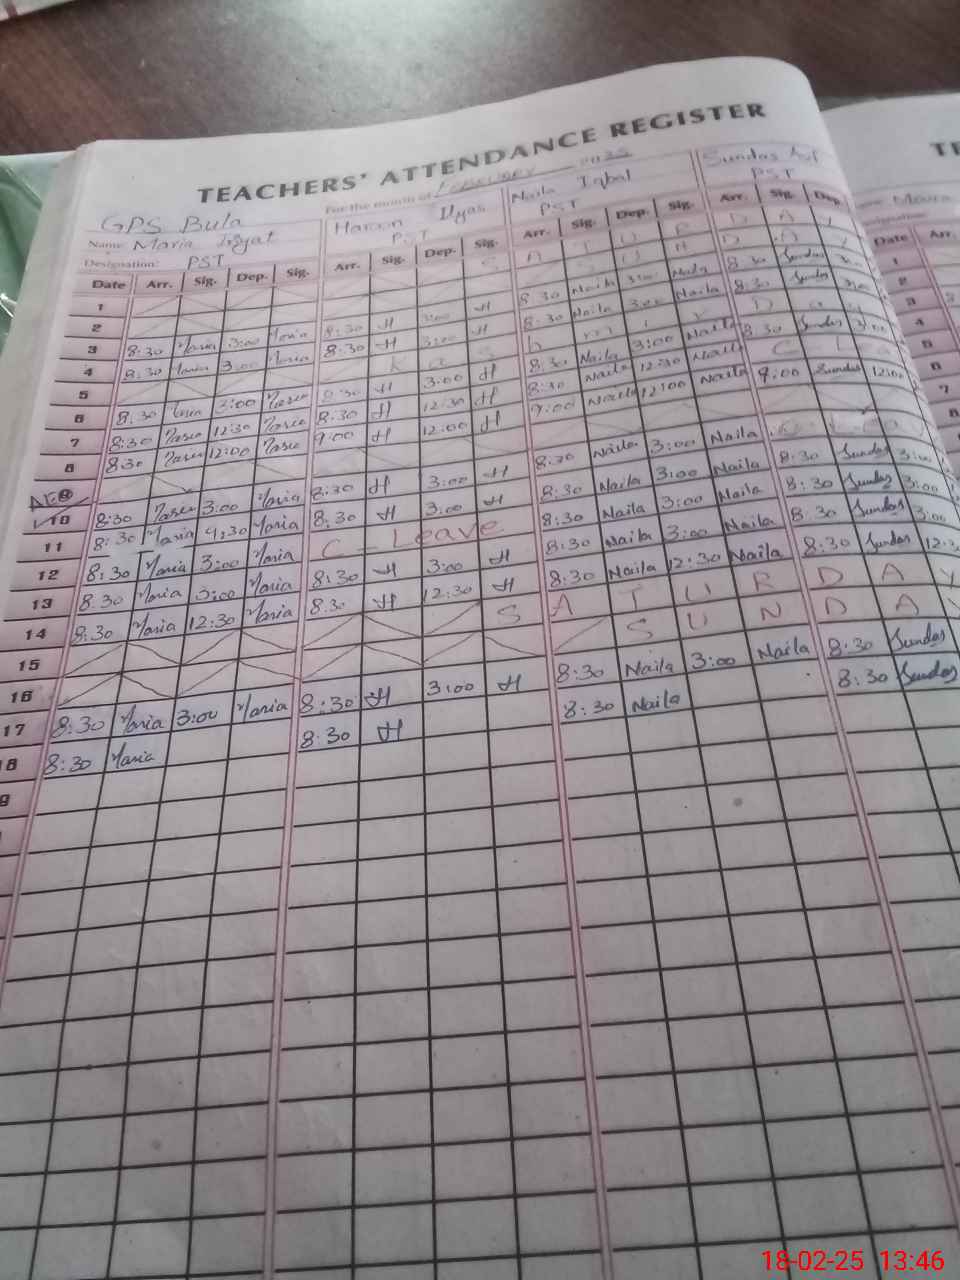 TEACHERS' ATTENDANCE REGISTER
For the month of February 2025
GPS Bula
Name Maria Haroon Ilyas Naila Iqbal Sundas
Designation: PST PST PST PST
Date Arr. Sig. Dep. Sig. Arr. Sig. Dep. Sig. Arr. Sig. Dep. Sig. Arr. Sig. Dep.
1 S A T U R D A Y
2 S U N D A Y
3 8:30 Maria 3:00 Maria 8:30 H 3:00 H 8:30 Naila 3:00 Naila 8:30 Sundas 3:00
4 8:30 Maria 3:00 Maria 8:30 H 3:00 H 8:30 Naila 3:00 Naila 8:30 Sundas 3:00
5 K a s h m i r D a y
6 8:30 Maria 3:00 Maria 8:30 H 3:00 H 8:30 Naila 3:00 Naila 8:30 Sundas 3:00
7 8:30 Maria 12:30 Maria 8:30 H 12:30 H 8:30 Naila 12:30 Naila C Lea
8 8:30 Maria 12:00 Maria 9:00 H 12:00 H 9:00 Naila 12:00 Naila 9:00 Sundas 12:00
10 8:30 Maria 3:00 Maria 8:30 H 3:00 H 8:30 Naila 3:00 Naila
11 8:30 Maria 4:30 Maria 8:30 H 3:00 H 8:30 Naila 3:00 Naila 8:30 Sundas 3:00
12 8:30 Maria 3:00 Maria C - Leave 8:30 Naila 3:00 Naila 8:30 Sundas 3:00
13 8:30 Maria 3:00 Maria 8:30 H 3:00 H 8:30 Naila 3:00 Naila 8:30 Sundas 3:00
14 8:30 Maria 12:30 Maria 8:30 H 12:30 H 8:30 Naila 12:30 Naila 8:30 Sundas 12:3
15 S A T U R D A Y
16 S U N D A Y
17 8:30 Maria 3:00 Maria 8:30 H 3:00 H 8:30 Naila 3:00 Naila 8:30 Sundas
18 8:30 Maria 8:30 H 8:30 Naila 8:30 Sundas
TE
Date Arr.
1
2
3
4
5
6
7
8
18-02-25 13:46